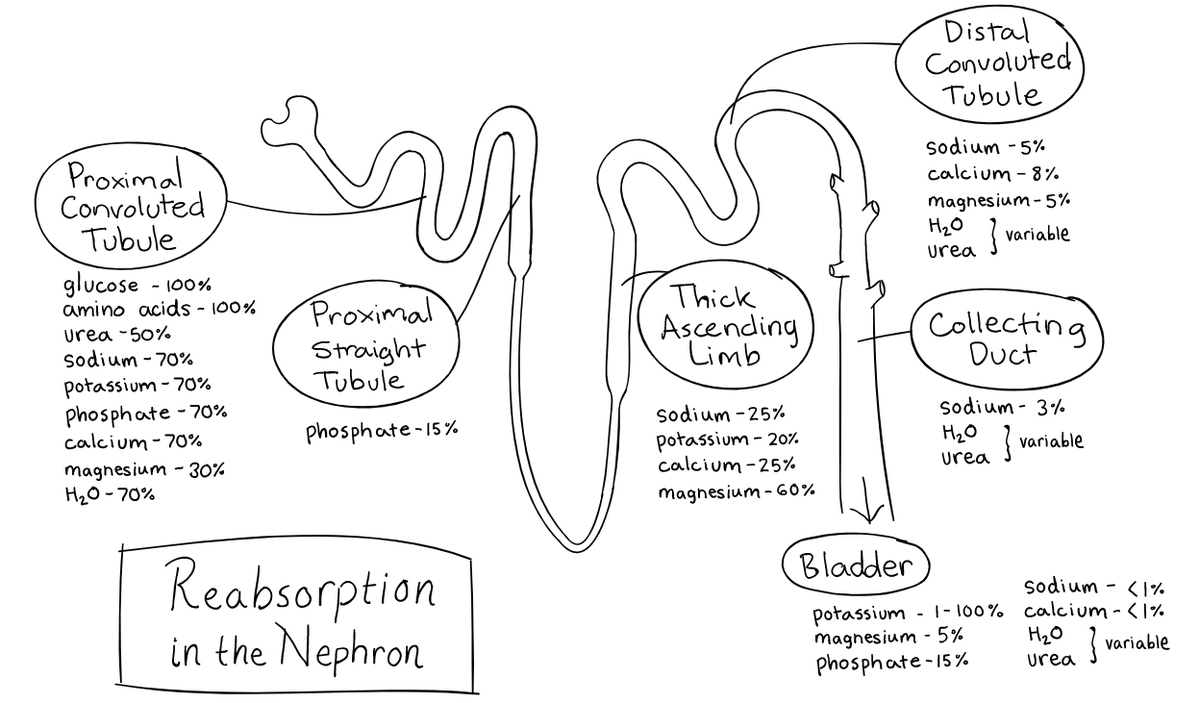 Distal
Convoluted
Tubule
sodium - 5%
calcium - 8%
magnesium - 5%
H₂O
urea } variable
Proximal
Convoluted
Tubule
glucose - 100%
amino acids - 100%
urea - 50%
sodium - 70%
potassium - 70%
phosphate - 70%
calcium - 70%
magnesium - 30%
H₂O - 70%
Proximal
Straight
Tubule
phosphate - 15%
Thick
Ascending
Limb
sodium - 25%
potassium - 20%
calcium - 25%
magnesium - 60%
Collecting
Duct
sodium - 3%
H₂O
urea } variable
Bladder
potassium - 1-100%
magnesium - 5%
phosphate - 15%
sodium - <1%
calcium - <1%
H₂O
urea } variable
Reabsorption
in the Nephron